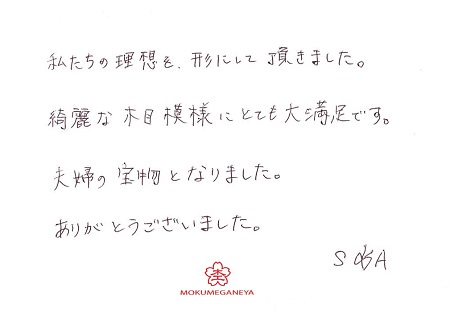 私たちの理想を、形にして頂きました。
綺麗な木目模様にとても大満足です。
夫婦の宝物となりました。
ありがとうございました。
MOKUMEGANEYA